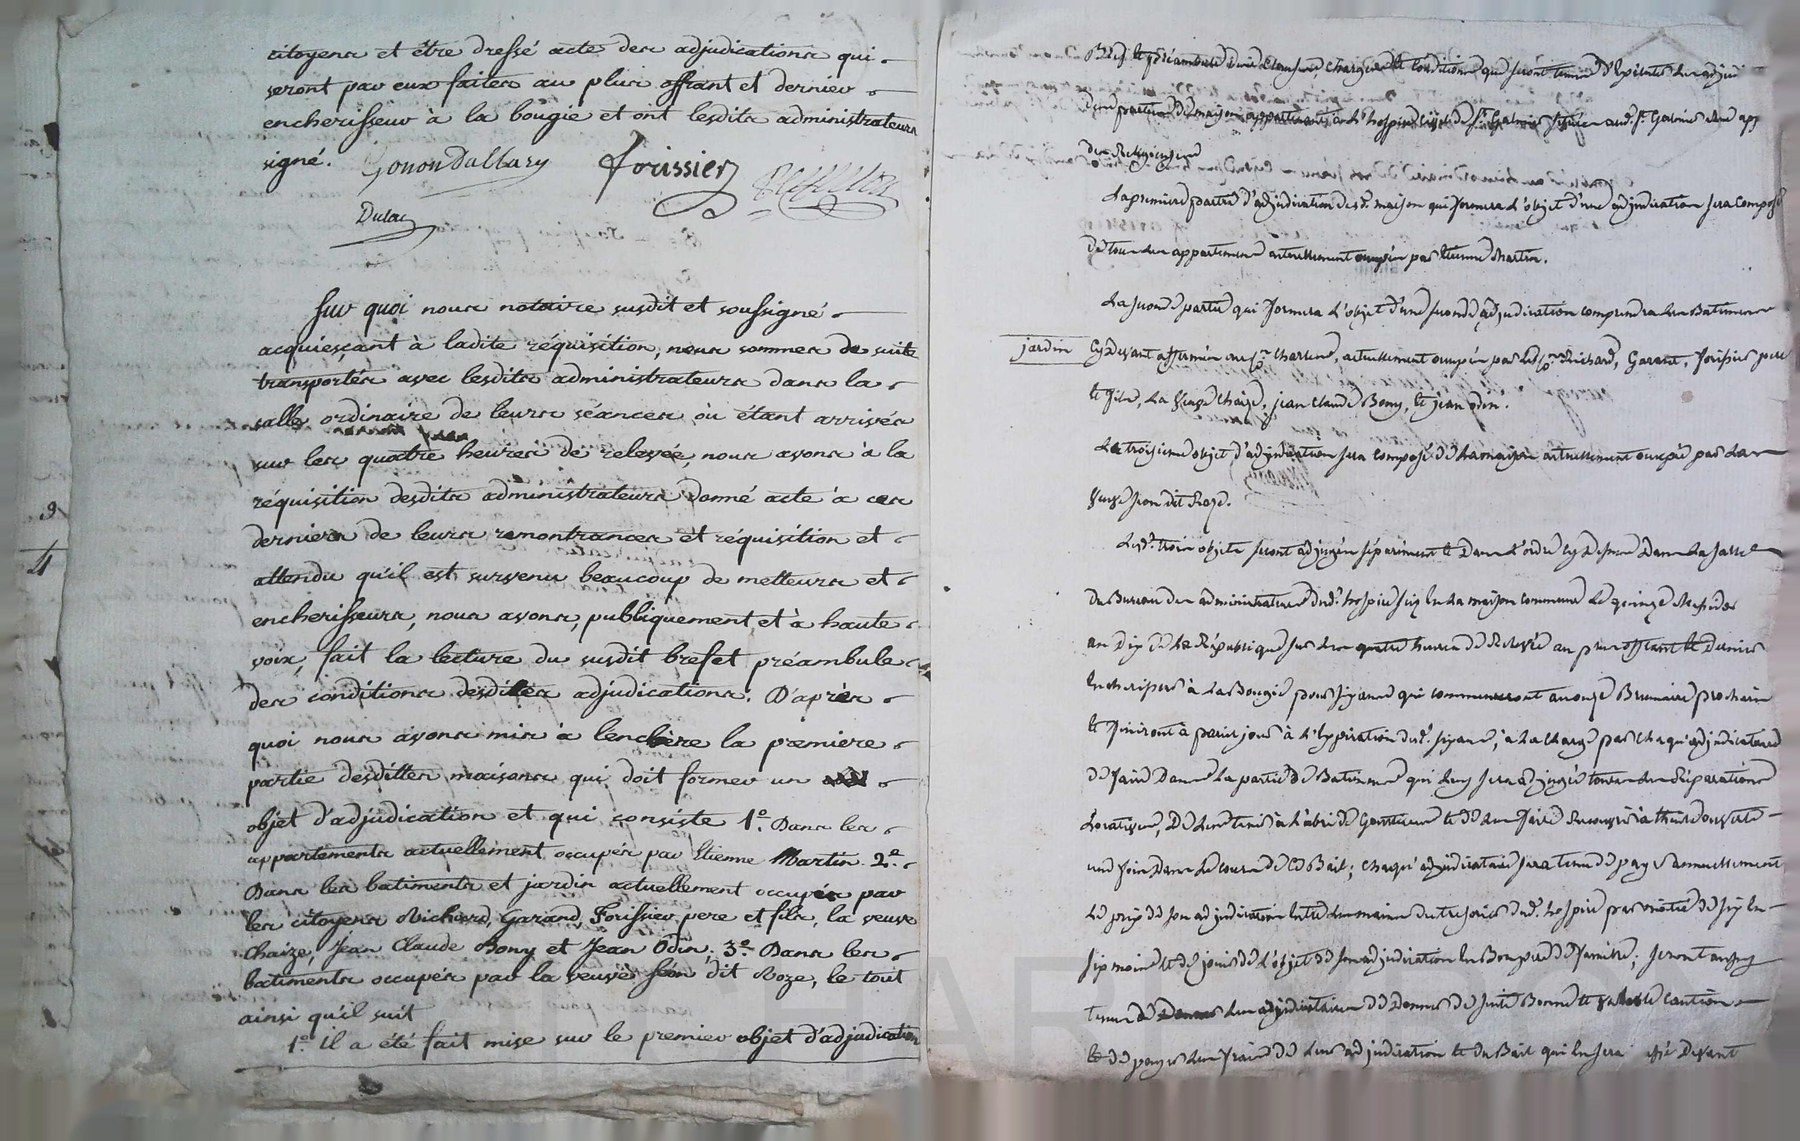 citoyens et être dressé acte des adjudications qui
seront par eux faites au plus offrant et dernier
encherisseur à la bougie et ont lesdits administrateurs
signé. Gonon Dallary forissier
Dulac
Sur quoi nous notaire susdit et soussigné
acquiesçant à ladite réquisition, nous sommes de suite
transportés avec lesdits administrateurs dans la
salle ordinaire de leurs séances où étant arrivés
sur les quatre heures de relevée, nous avons à la
réquisition desdits administrateurs donné acte à ces
derniers de leurs remontrances et réquisition et
attendu qu'il est survenu beaucoup de metteurs et
encherisseurs, nous avons, publiquement et à haute
voix, fait la lecture du susdit bref et préambule
des conditions desdites adjudications. D'après
quoi nous avons mis à lenchère la premiere
partie desdittes maisons qui doit former un
objet d'adjudication et qui consiste 1°. Dans les
appartements actuellement occupés par Etienne Martin 2°.
Dans les batiments et jardin actuellement occupés par
les citoyens Richard, Garand, Forissier pere et fils, la veuve
Chaize, Jean Claude Bony et Jean Odin, 3°. Dans les
batiments occupés par la veuve Jéon dit Roze, le tout
ainsi qu'il suit
1°. il a été fait mise sur le premier objet d'adjudication
Bref et préambule des clauses charges et conditions que seront tenus d'exécuter les adjud
des parties de maison appartenant à l'hospice civil de St. Galmier située aud. St. Galmier
des Religieuses
La premiere partie d'adjudication desd. maison qui formera l'objet d'une adjudication sera composé
de tous les appartemens actuellement occupés par Etienne Martin.
La seconde partie qui formera l'objet d'une seconde adjudication comprendra les Batimens
jardin Cy devant affermés actuellement occupés par les Richard, Garant, forissier pere
et fils, La Veuve Chaize, jean Claude Bony, et jean odin.
Le troisieme objet d'adjudication sera composé de la maison actuellement occupée par la
Veuve Jeon dit Roze.
Lesd. trois objets seront adjugés séparément et dans l'ordre cy dessus dans la salle
du Bureau des administrateurs dud. hospice sis en la maison commune le quinze Messidor
an dix de la République sur les quatre heures de Relevée au plus offrant et dernier
encherisseur à la Bougie pour six années qui commenceront au onze Brumaire prochain
et finiront à pareil jour à l'expiration dud. six ans, à la charge par chaqu'adjudicataire
de faire dans la partie de Batimens qui luy sera adjugée toutes les Réparations
Locatives, De les tenir à l'abri de Gouttieres et de les faire
une fois dans le cours de ce Bail; chaqu'adjudicataire sera tenu de payer annuellement
Le prix de son adjudication entre les mains du trésorier dud. hospice par moitié de six en
six mois et de jouir de l'objet de son adjudication en Bon pere de famille; seront aussy
tenus les adjudicataires de donner de suite Bonne et valable caution
et de payer les frais de leur adjudication et du Bail qui en sera passé devant